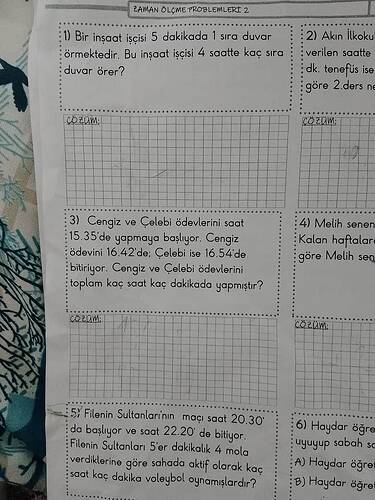 ZAMAN ÖLÇME PROBLEMLERİ 2
1) Bir inşaat işçisi 5 dakikada 1 sıra duvar
örmektedir. Bu inşaat işçisi 4 saatte kaç sıra
duvar örer?
2) Akın İlkoku
verilen saatte
dk. tenefüs ise
göre 2.ders ne
ÇÖZÜM:
ÇÖZÜM:
3) Cengiz ve Çelebi ödevlerini saat
15.35'de yapmaya başlıyor. Cengiz
ödevini 16.42'de; Çelebi ise 16.54'de
bitiriyor. Cengiz ve Çelebi ödevlerini
toplam kaç saat kaç dakikada yapmıştır?
4) Melih senen
Kalan haftalar
göre Melih sen
ÇÖZÜM:
ÇÖZÜM:
5) Filenin Sultanları'nın maçı saat 20.30'
da başlıyor ve saat 22.20' de bitiyor.
Filenin Sultanları 5'er dakikalık 4 mola
verdiklerine göre sahada aktif olarak kaç
saat kaç dakika voleybol oynamışlardır?
6) Haydar öğre
uyuyup sabah sa
A) Haydar öğret
B) Haydar öğret